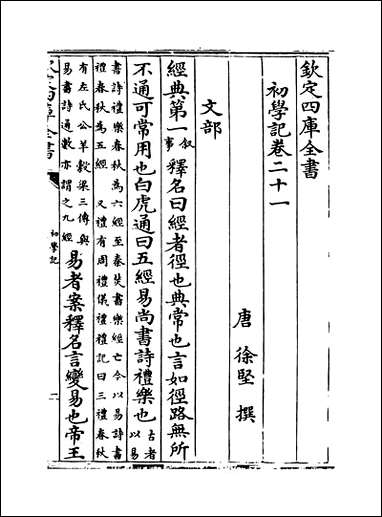 欽定四庫全書
初學記卷二十一
唐 徐堅 撰
文部
經典第一 叙事 釋名曰經者徑也典常也言如徑路無所
不通可常用也白虎通曰五經易尚書詩禮樂也 古者以易
書詩禮樂春秋為六經至秦焚書樂經亡今以易詩書
禮春秋為五經 又禮有周禮儀禮禮記曰三禮春秋
有左氏公羊穀梁三傳與
易書詩通數亦謂之九經 易者案釋名言變易也帝王
欽定四庫全書
初學記
一